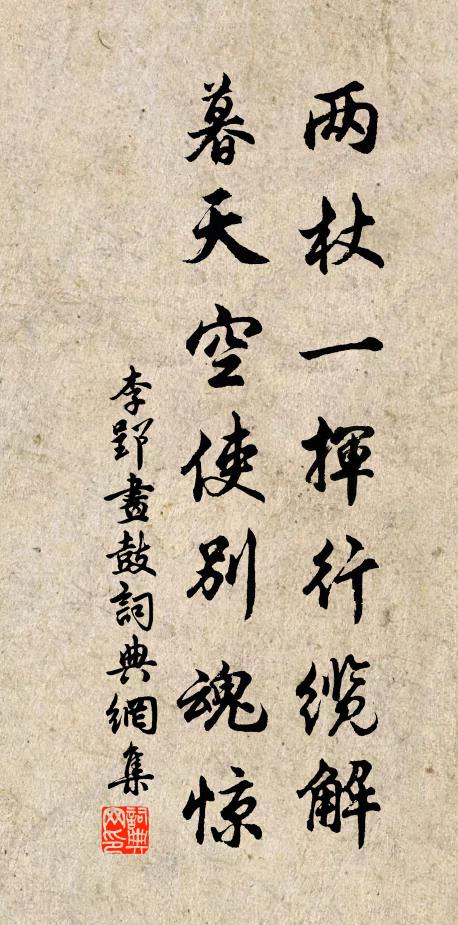 两杖一揮行缆解
暮天空使别魂惊
李郢畫鼓詞典網集
詞典網印